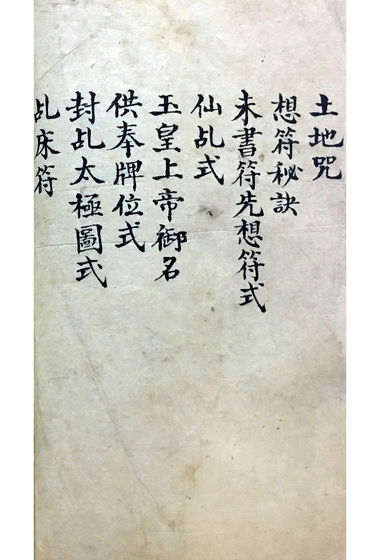 土地咒
想符秘訣
未書符先想符式
仙乩式
玉皇上帝御名
供奉牌位式
封乩太極圖式
乩床符